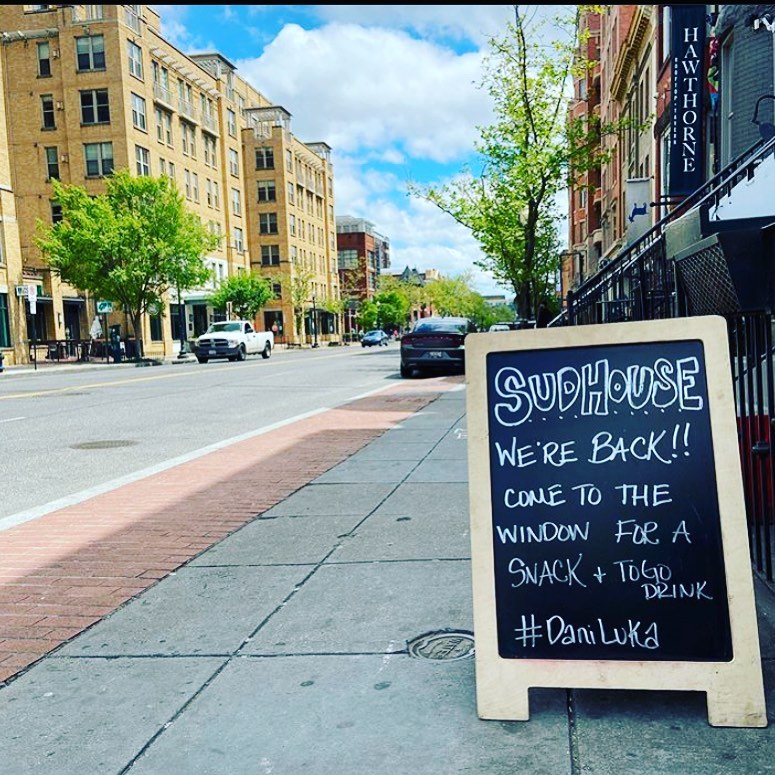 HAWTHORNE
ROOFTOP • TAVERN
SUDHOUSE
WE'RE BACK!!
COME TO THE
WINDOW FOR A
SNACK + TOGO
DRINK
#DaniLuka